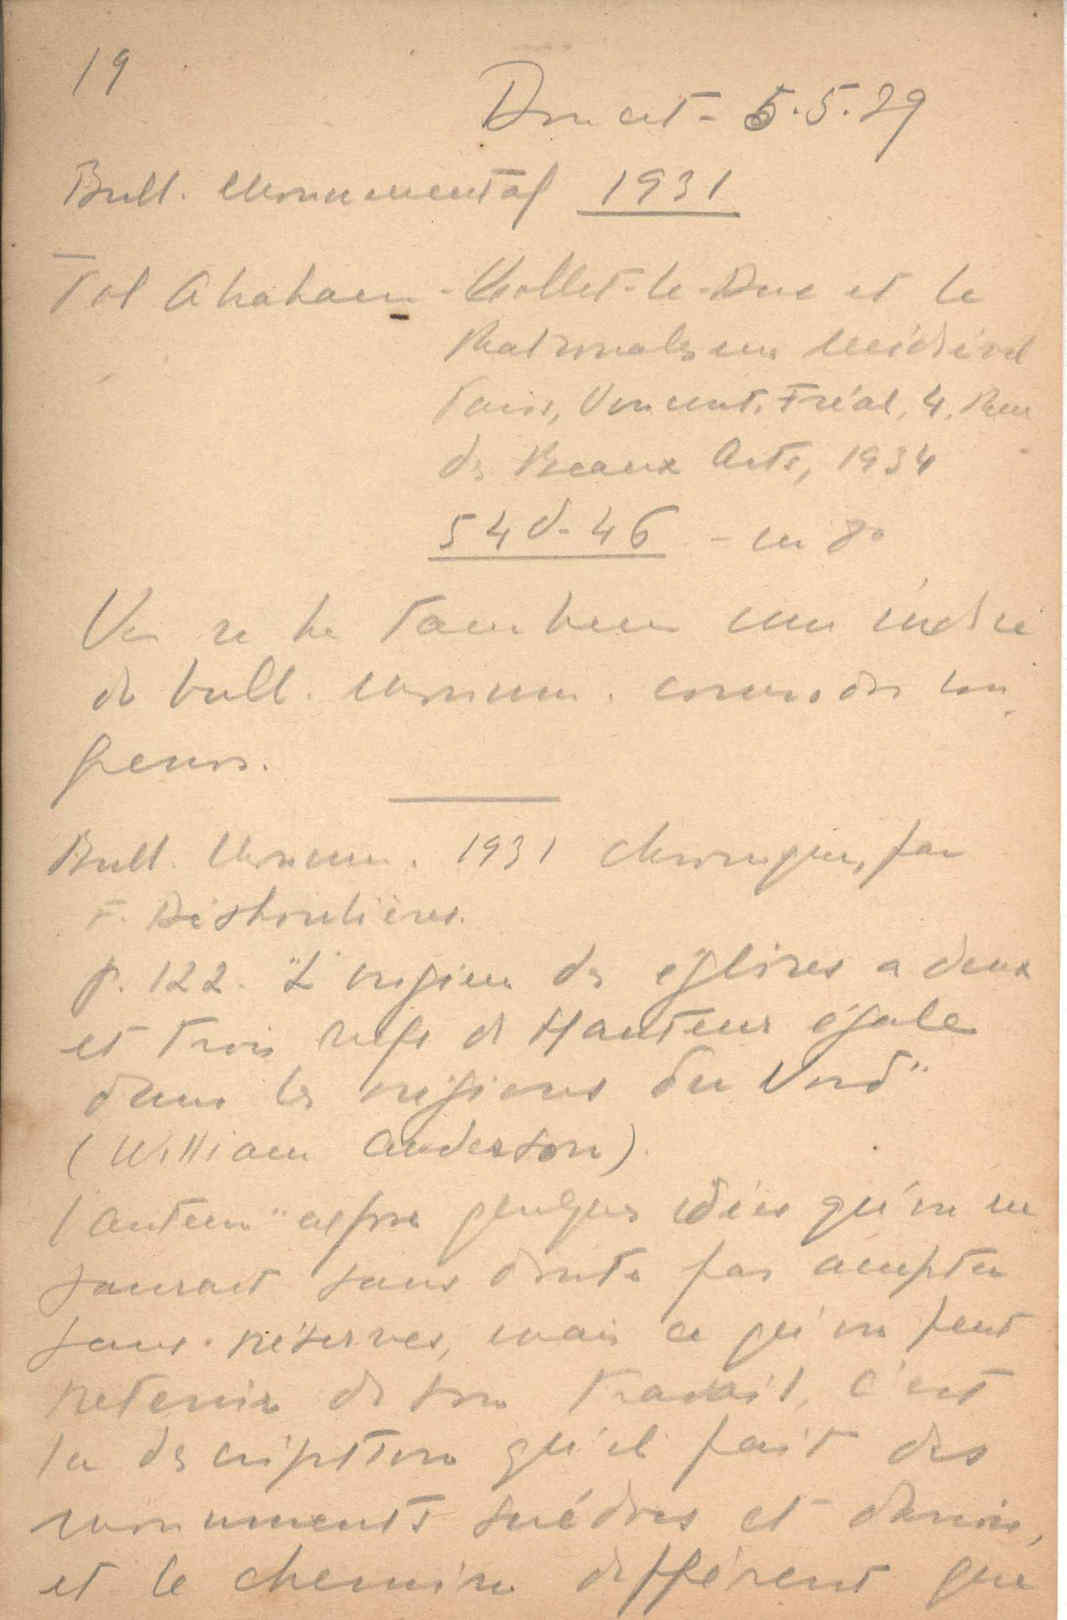 19
Doucet - 5.5.29
Bull. Monumental 1931
Pol Abraham - Viollet-le-Duc et le
Rationalisme Médiéval
Paris, Vincent, Fréal, 4, Rue
des Beaux Arts, 1934
54 d. 46 - in 8°
une
de bull. Monum.
Bull. Monum. 1931 chronique, par
F. Déshoulières.
p. 122. "L'origine des églises a deux
et trois nefs de Hauteur égale
dans les régions du Nord"
(William Anderson).
l'auteur "expose quelques idées qu'on ne
saurait sans doute pas accepter
sans réserves, mais ce qu'on peut
retenir de son travail, c'est
la description qu'il fait des
monuments suédois et danois,
et le chemin différent que